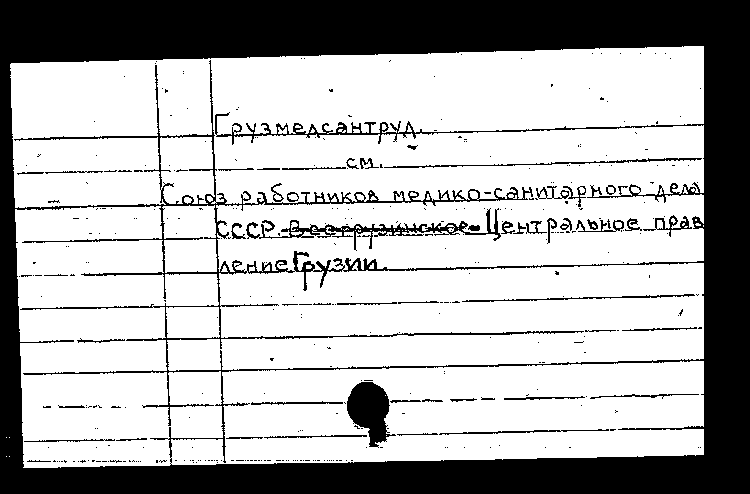 Грузмедсантруд.
см.
Союз работников медико-санитарного дела
СССР. Всегрузинское Центральное прав
ление Грузии.